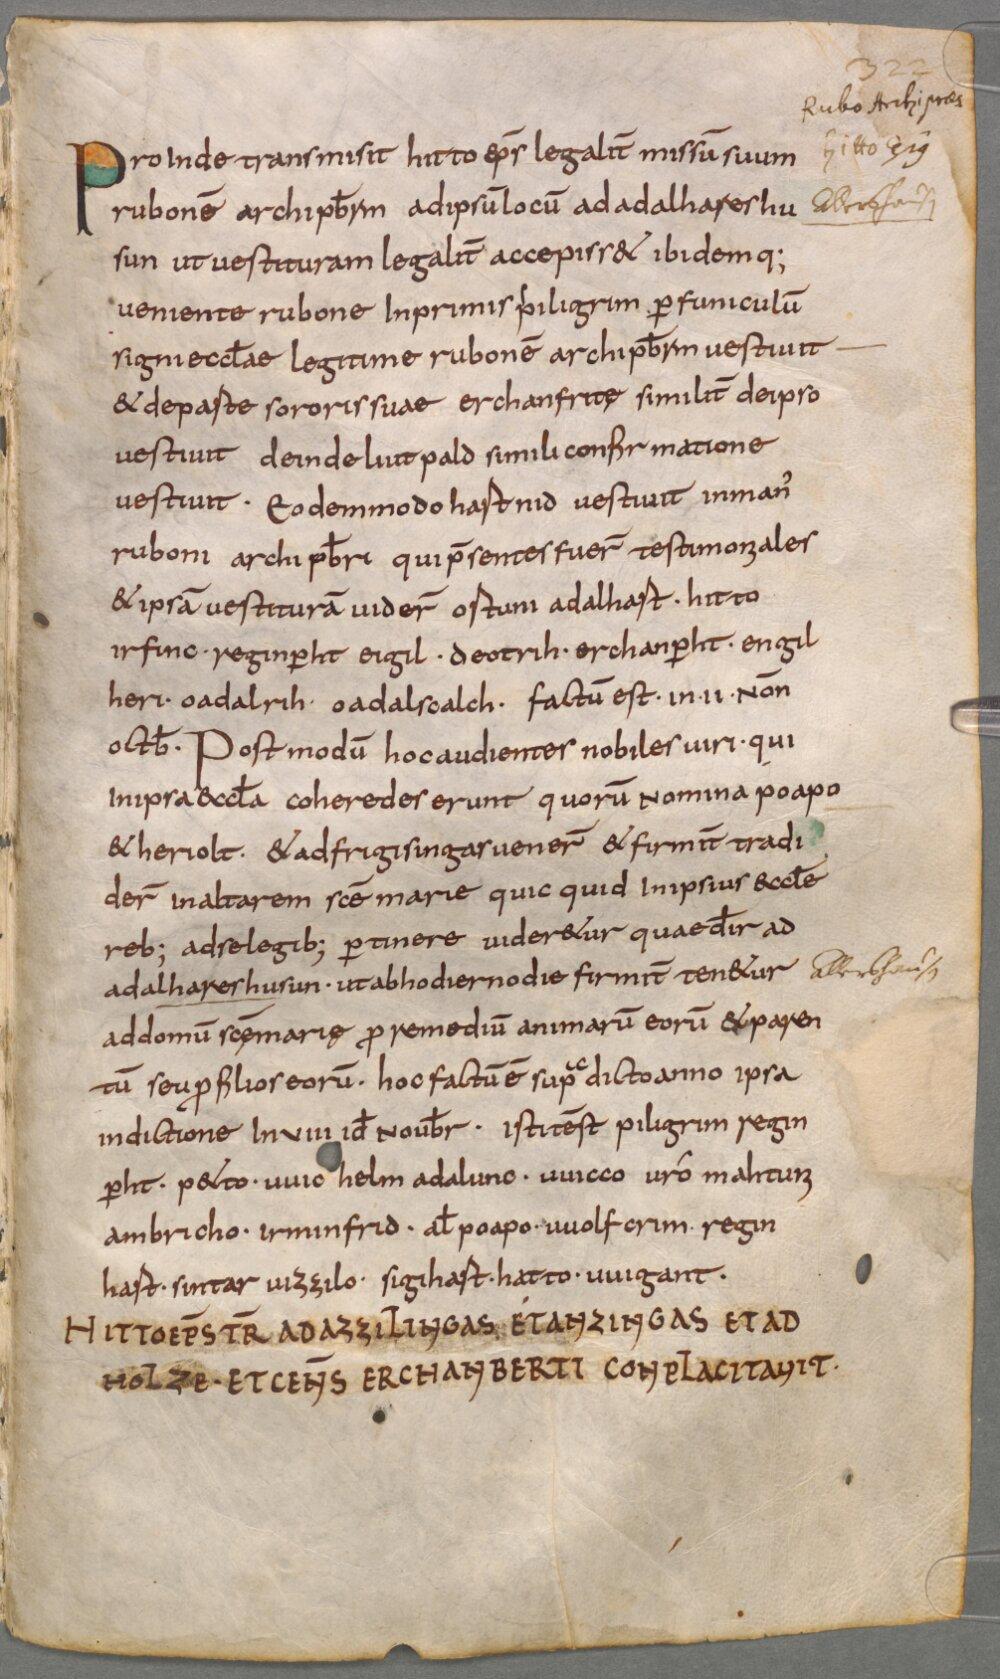 322
Rubo Archipres
hitto
Proinde transmisit hitto ep̄s legalit̄ missū suum
rubonē archipb̄rm adipsū locū ad adalhareshu
sun ut uestituram legalit̄ accepiss& ibidemq;
ueniente rubone Inprimis piligrim ꝑ funiculū
signi eccl̄ae legitime rubonē archipb̄rm uestiuit —
& de paste sororis suae erchanfritę similit̄ de ipso
uestiuit deinde liutpald simili confirmatione
uestiuit · Eodem modo hastnid uestiuit in man̄
ruboni archipb̄ri qui p̄sentes fuer̄ testimoniales
& ipsā uestiturā uider̄ ostuni adalhast · hitto
irfinc · reginꝑht eigil · deotrih · erchanꝑht · engil
heri · oadalrih · oadalscalch · factū est · in · ii · Nōn
octb̄ · Postmodū hoc audientes nobiles uiri · qui
In ipsa eccl̄a coheredes erunt quorū Nomina poapo
& heriolt · & ad frigisingas uener̄ & firmit̄ tradi
der̄ in altarem scē marie quic quid In ipsius eccl̄e
reb; ad se legib; ꝑtinere uider&ur quae d̄ir ad
adalhareshusun · ut ab hodierno die firmit̄ ten&ur
ad domū scę̄ marię ꝓ remediū animarū eorū & paren
tū seu ꝓ filios eorū · hoc factū ē sup̄dicto anno ipsa
indictione In viii id̄ Noub̄r · isti t̄est piligrim regin
ꝑht · p&to · uuic helm adalunc · uuicco urō mahtuni
ambricho · irminfrid · al̄ poapo · uuolfcrim · regin
hast · sintar uizzilo · sigihast · hatto · uuigant ·
HITTO EP̄S TR̄ AD AZZILINGAS ET ANZINGAS ET AD
HOLZE · ET CEN̄S ERCHANBERTI CONPLACITAUIT ·